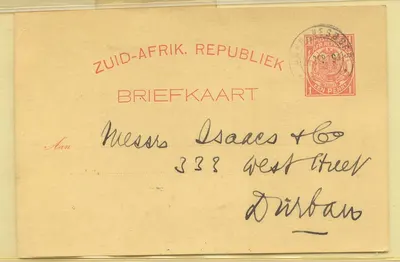 ZUID-AFRIK. REPUBLIEK
BRIEFKAART
Aan
Messrs Isaacs & Co
333 West Street
Durban